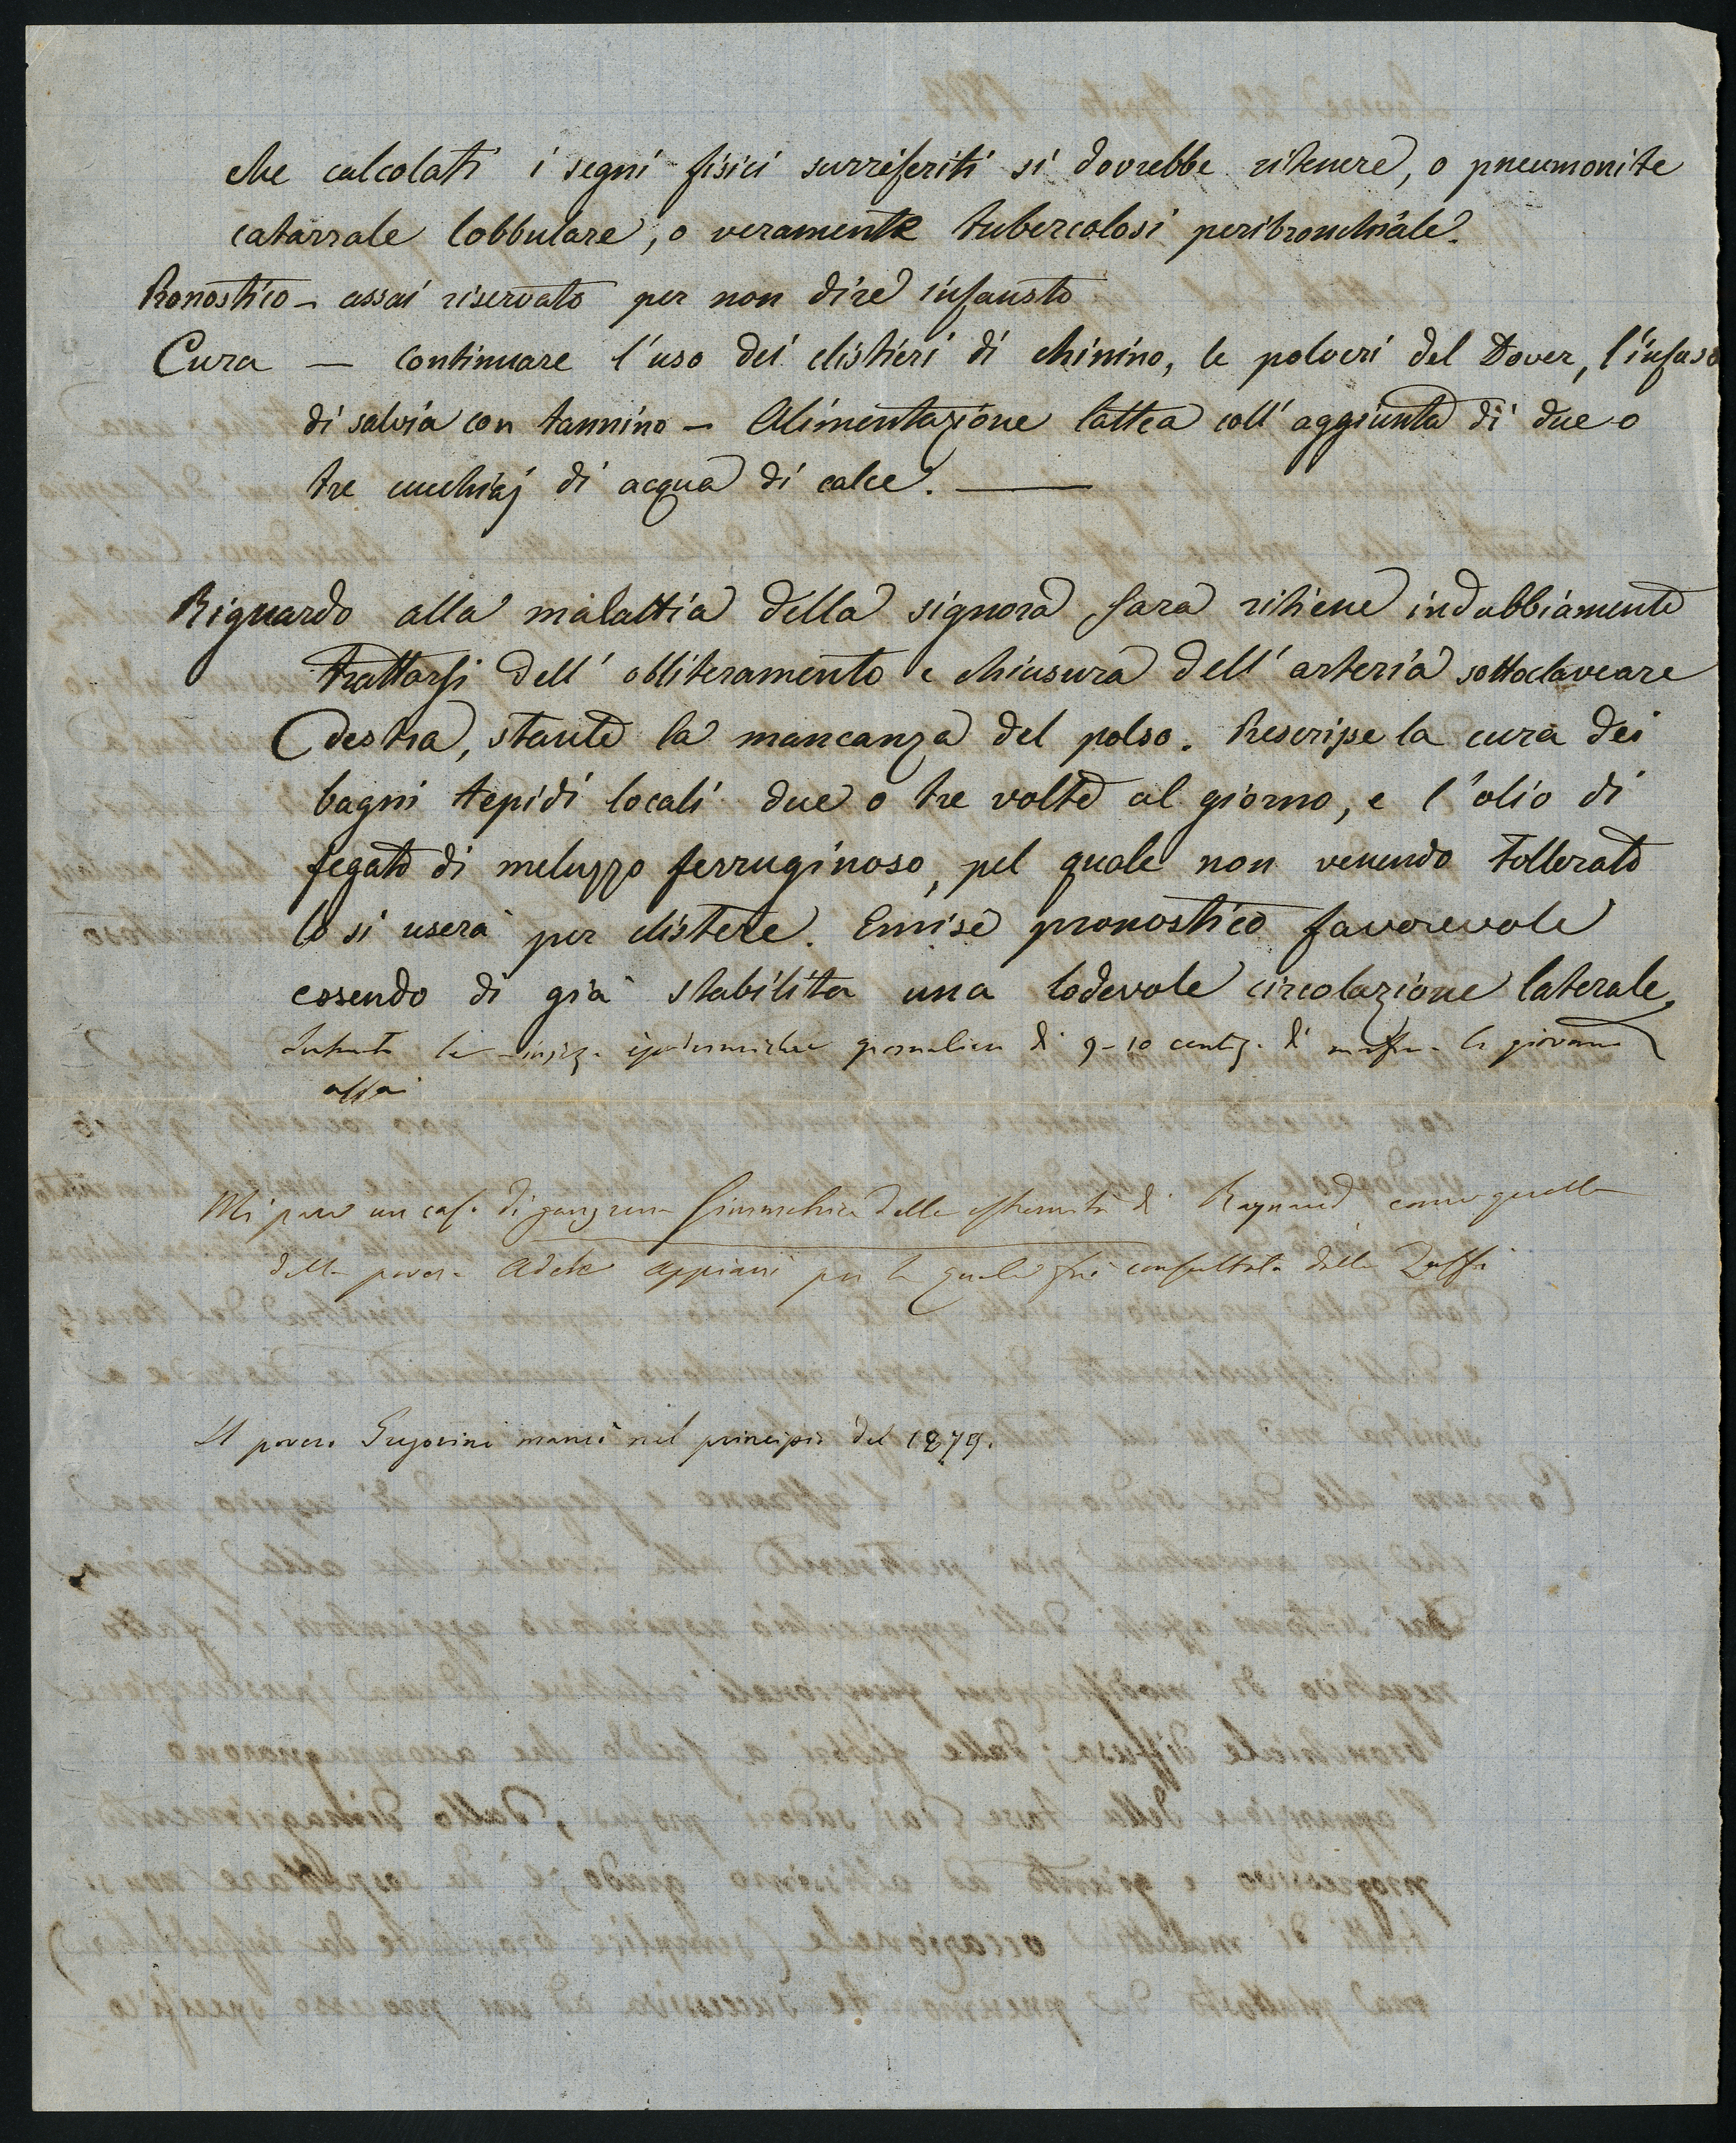 che calcolati i segni fisici surriferiti si dovrebbe ritenere, o pneumonite
catarrale lobbulare, o veramente tubercolosi peribronchiale.
Pronostico - assai riservato per non dire infausto
Cura — continuare l'uso dei clistieri di chinino, le polveri del Dover, l'infuso
di salvia con tannino - Alimentazione lattea coll'aggiunta di due o
tre cucchiaj di acqua di calce. —
Riguardo alla malattia della signora Sara ritiene indubbiamente
trattarsi dell'obliteramento e chiusura dell'arteria sottoclaveare
destra, stante la mancanza del polso. Prescripse la cura dei
bagni tepidi locali due o tre volte al giorno, e l'olio di
fegato di meluzzo ferruginoso, pel quale non venendo tollerato
lo si userà per clistere. Emise pronostico favorevole
essendo di già stabilita una lodevole circolazione laterale,
le injez. ipodermiche giornaliere di 9-10 centig. di morfina le giovano
assai
Mi pare un caso di gangrena simmetrica delle estremità di Raynaud come quella
della povera Adele Appiani per la quale fui consultato dalla
Il povero Gregorini morì nel principio del 1879.